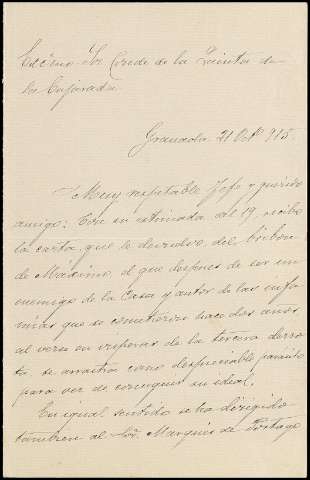 Excmo. Sr. Conde de la Quinta de
la Enjarada.
Granada 21 Oct. 915.
Muy respetable Jefe y querido
amigo: Con su estimada del 19, recibo
la carta que le devuelvo, del bribon
de Máximo, el que despues de ser un
enemigo de la Casa y autor de las infa-
mias que se cometieron hace dos años
al verse en visperas de la tercera derro-
ta se arrastra como despreciable
para ver de conseguir su ideal.
En igual sentido se ha dirigido
tambien al Sr. Marqués de Portago